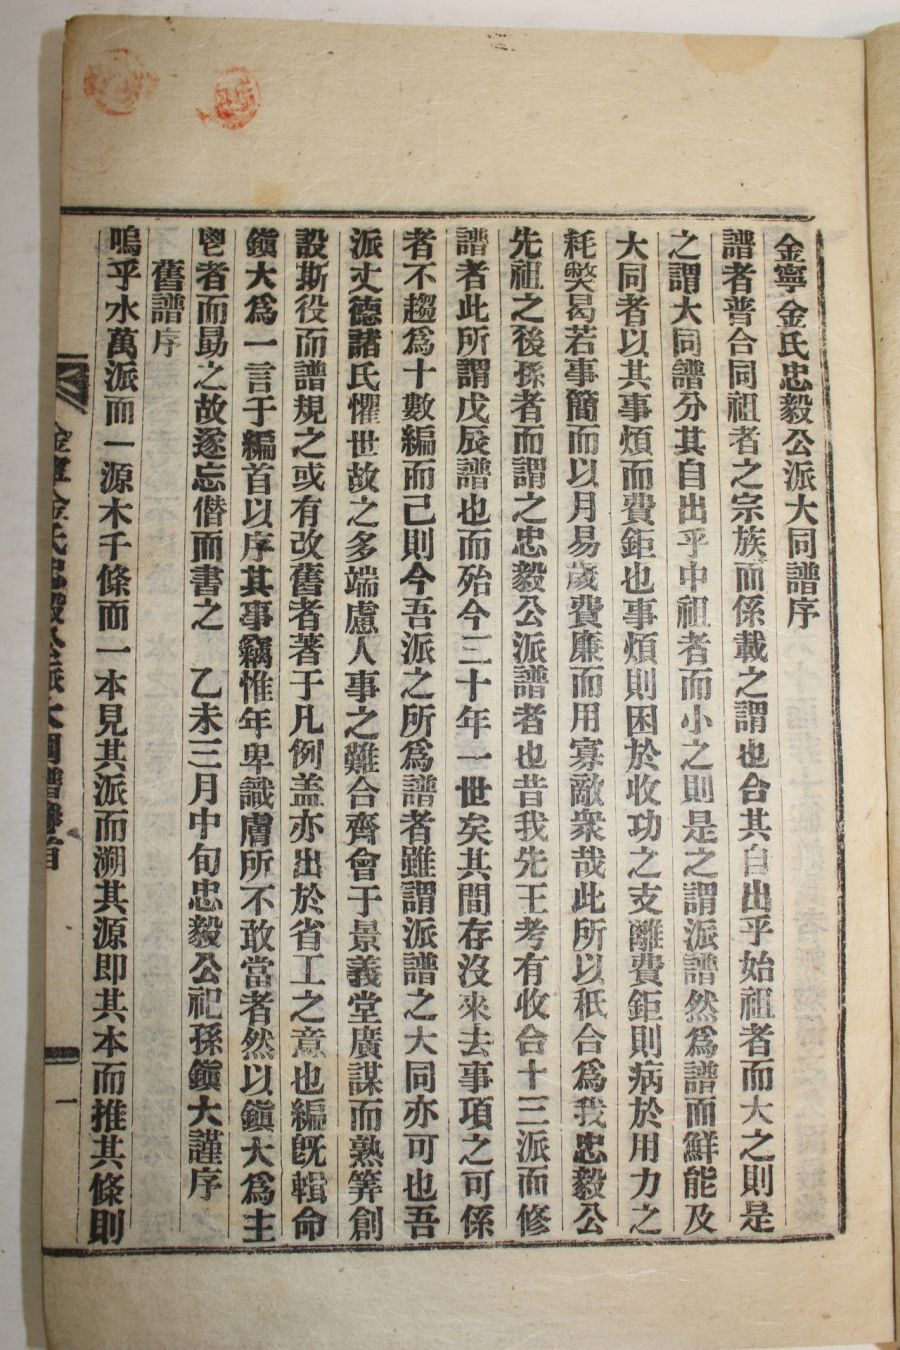 金寧金氏忠毅公派大同譜序
譜者普合同祖者之宗族而係載之謂也合其自出乎始祖者而大之則是
之謂大同譜分其自出乎中祖者而小之則是之謂派譜然爲譜而鮮能及
大同者以其事煩而費鉅也事煩則困於收功之支離費鉅則病於用力之
耗弊曷若事簡而以月易歲費廉而用寡敵衆哉此所以秖合爲我忠毅公
先祖之後孫者而謂之忠毅公派譜者也昔我先王考有收合十三派而修
譜者此所謂戊辰譜也而殆今三十年一世矣其間存沒來去事項之可係
者不趨爲十數編而己則今吾派之所爲譜者雖謂派譜之大同亦可也吾
派丈德諸氏懼世故之多端慮人事之難合齊會于景義堂廣謀而熟筭創
設斯役而譜規之或有改舊者著于凡例盖亦出於省工之意也編旣輯命
鎭大爲一言于編首以序其事竊惟年卑識膚所不敢當者然以鎭大爲主
鬯者而勗之故遂忘僭而書之　乙未三月中旬忠毅公祀孫鎭大謹序
舊譜序
嗚乎水萬派而一源木千條而一本見其派而溯其源卽其本而推其條則
金寧金氏忠毅公派大同譜卷首
一